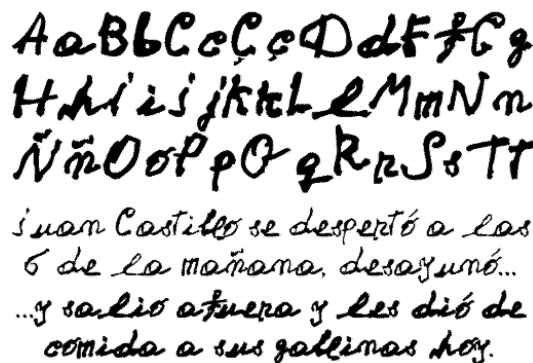 A a B b C c Ç ç D d F f G g
H h i i j j k k L l M m N n
Ñ ñ O o P p Q q R r S s T t
juan Castillo se despertó a las
6 de la mañana, desayunó...
...y salio afuera y les dió de
comida a sus gallinas hoy.